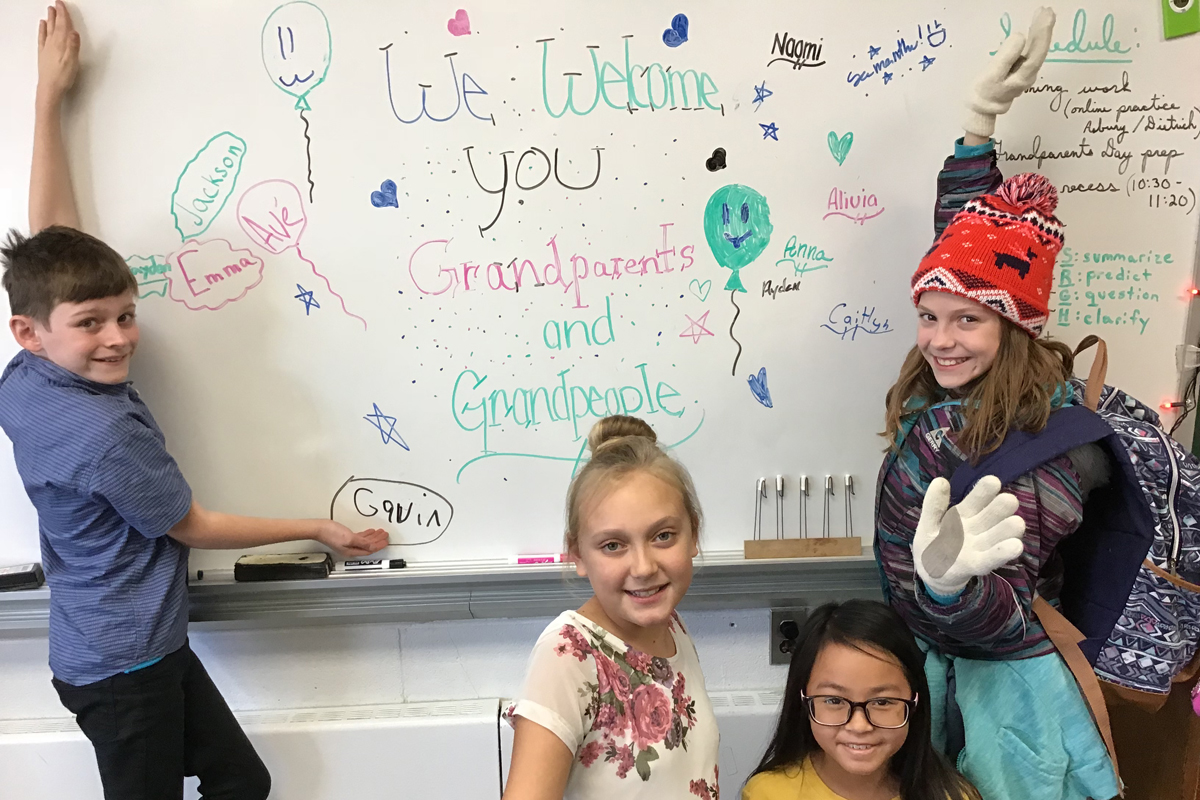 We Welcome
you
Grandparents
and
Grandpeople
Jackson
Avé
Emma
Gavin
Naomi
Samantha!
Alivia
Caitlyn
(online practice
Asbury / Dietrich)
Grandparents Day prep
recess (10:30 -
11:20)
S: summarize
R: predict
G: question
H: clarify